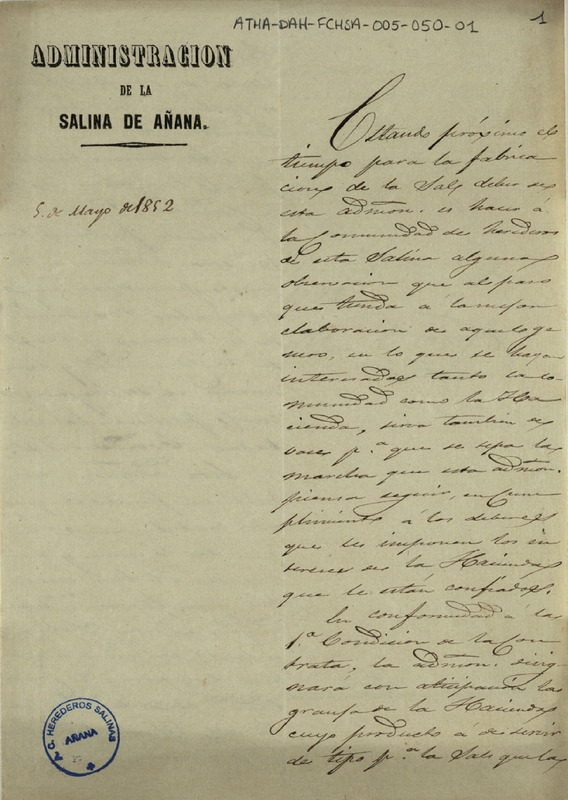 ATHA-DAH-FCHSA-005-050-01
1
ADMINISTRACION
DE LA
SALINA DE AÑANA.
5. de Mayo de 1852
Estando próximo el
tiempo para la fabrica
cion de la Sal, debe
esta admon. hacer á
la Comunidad de herederos
de esta Salina alguna
observacion que al paso
que tienda á la mejor
elaboracion de aquel ge
nero, en lo que se hayan
interesados tanto la co-
munidad como la Ha
cienda, sirva tambien de
vase p.ª que se sepa la
marcha que esta admon.
piensa seguir, en cum
plimiento á los deberes
que le imponen los in
tereses de la Hacienda
que le están confiados.
En conformidad á la
1.ª Condicion de la Con
trata, la admon. desig
nará con anticipacion la
granja de la Hacienda
cuyo producto á de servir
de tipo p.ª la Sal que la
C. HEREDEROS SALINAS
AÑANA